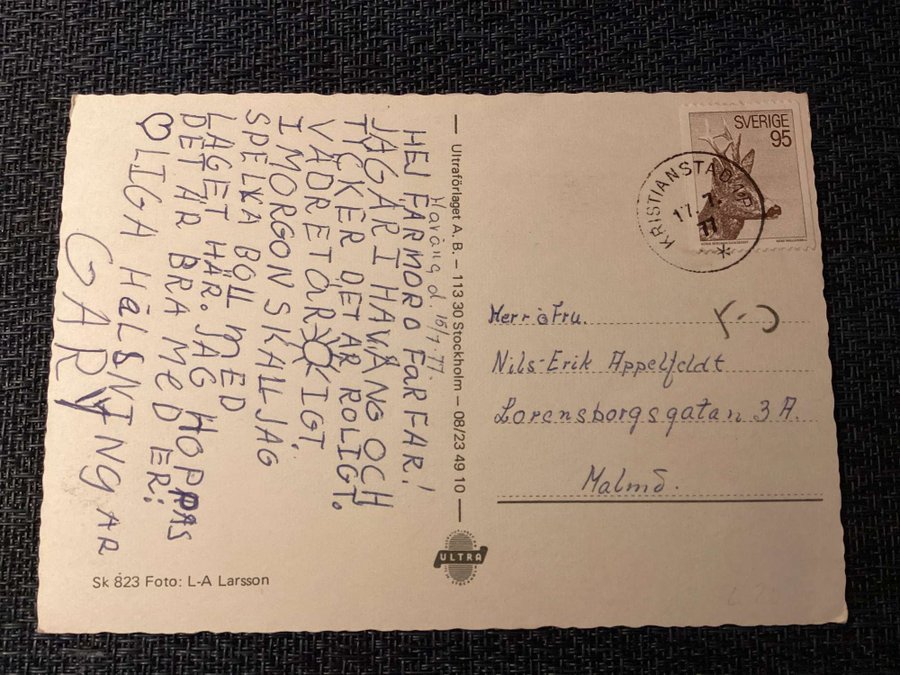 Haväng d. 15/7. 77.
HEJ FARMOR O FARFAR!
JAG ÄR I HAVÄNG OCH
TYCKER DET ÄR ROLIGT.
VÄDRET ÄR ☼IGT.
I MORGON SKALL JAG
SPELKA BOLL MED
LAGET HÄR. JAG HOPPAS
DET ÄR BRA MED ER!
♡LIGA HÄLSNINGAR
GARY
Ultraförlaget A. B. – 113 30 Stockholm – 08/23 49 10
ULTRA
Sk 823 Foto: L-A Larsson
SVERIGE
95
KRISTIANSTAD
17.7.
77
Herr o Fru.
Nils-Erik Appelfeldt
Lorensborgsgatan 3 A.
Malmö.